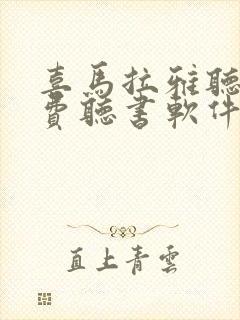 喜馬拉雅聽
費聽書軟件
直上青雲